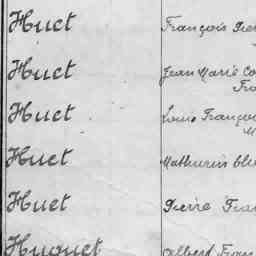 Huet François Pier
Huet Jean Marie Co
Fra
Huet Louis Françoi
M
Huet Mathurin
Huet Pierre Fran
Huguet Albert Fran